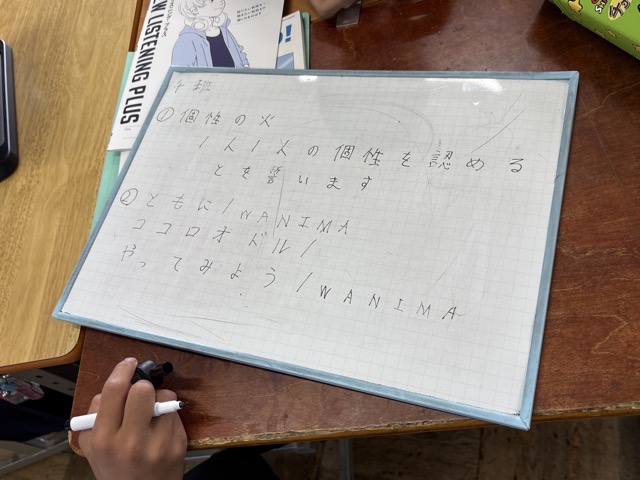 LISTENING PLUS
十班
①個性の火
1人1人の個性を認める
とを誓います
②ともに/WANIMA
ココロオドル/
やってみよう/WANIMA